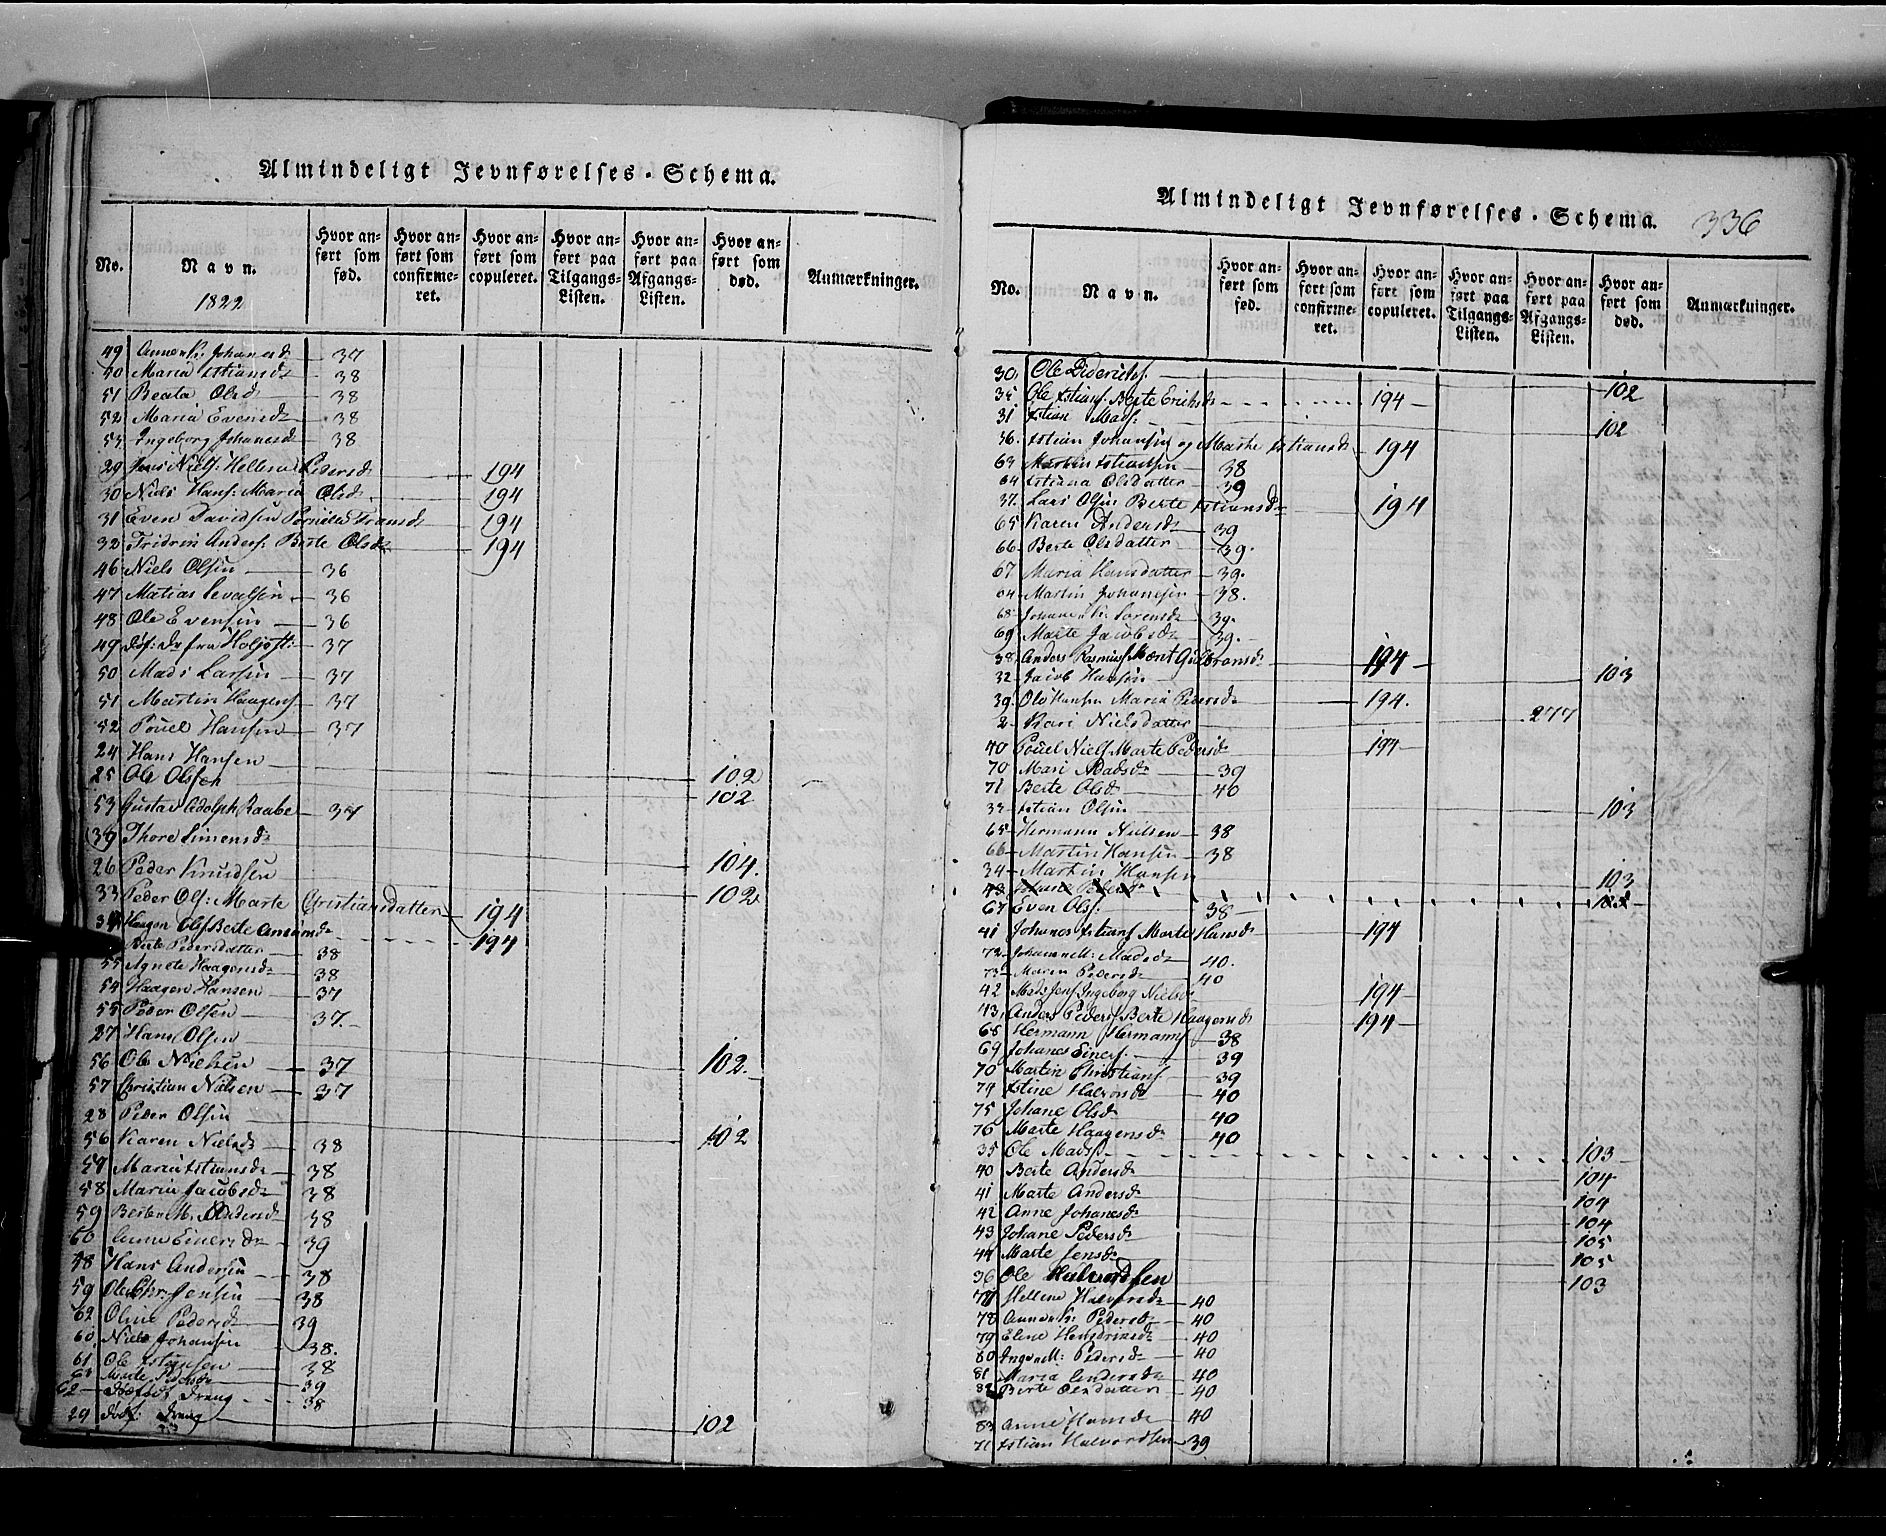 Almindeligt Jevnførelses-Schema.
No. Navn. 1822 Hvor anført som fød. Hvor anført som confirmeret. Hvor anført som copuleret. Hvor anført paa Tilgangs-Listen. Hvor anført paa Afgangs-Listen. Hvor anført som død. Anmærkninger.
49 Johanesd 37
50 Maria 38
51 Beata Olsd 38
52 Maria Evensd 38
53 Ingeborg Johanesd 38
29 Jens Niels: Hellene Pedersd 194
30 Niels Hans: Maria Olsd 194
31 Even Davidsen Fransd 194
32 Anders: Berte Olsd 194
46 Niels Olsen 36
47 Matias 36
48 Ole Evensen 36
49 37
50 Mads Larsen 37
51 Martin Haagens 37
52 Pouel Hansen 37
24 Hans Hansen 102
25 Ole Olsen 102
53 Gustav Adolph Raabe 37
39 Thore Simensd 104.
26 Peder Knudsen 102
33 Peder Ols: Marte Christiansdatter 194
34 Haagen Ols Berte 194
Berte Pedersdatter 38
55 Agnete Haagensd 38
54 Haagen Hansen 37
55 Peder Olsen 37.
27 Hans Olsen 102.
56 Ole Nielsen 37
57 Christian Nilsen 37
28 Peder Olsen 102
56 Karen Nielsd 38
57 38
58 Maria Jacobsd 38
59 M. Andersd 38
60 Anne Einersd 39
58 Hans Andersen 38
59 Ole Chr: Jensen 38
62 Oline Pedersd 39
60 Niels Johansen 38.
61 Ole 38
63 Marte Pedersd 39
62 Dreng 38
29 Dreng 102
Almindeligt Jevnførelses-Schema. 336
No. Navn. Hvor anført som fød. Hvor anført som confirmeret. Hvor anført som copuleret. Hvor anført paa Tilgangs-Listen. Hvor anført paa Afgangs-Listen. Hvor anført som død. Anmærkninger.
30 Ole Diderichs. 102
35 Ole Berte Eriksd 194
31 Mads. 102
36. Johansen og Marthe 194
63 Martin 38
64 Olsdatter 39
37. Lars Olsen Berte 194
65 Karen Andersd 39
66 Berte Olsdatter 39.
67 Maria Hansdatter 39.
64 Martin Johansen 38.
68 Sorensd 39.
69 Marte Jacobsd 39.
38 Anders Rasmus Gulbransd 194
32 Jacob Hansen 103
39. Ole Hansen Maria Pedersd 194.
2 Kari Nielsdatter 277
40 Pouel Niels Marte Pedersd 194
70 Mari Madsd 39
71 Berte Olsd 40
33 Olsen 103
65 Hermann Nielsen 38
66 Martin Hansen 38
34 Martin Hansen 103
43 Johane Pedersd
67 Even Ols: 38
41 Johanes Marte Hansd 194
72 Johanne M: Madsd 40.
73 Maren Pedersd 40
42 Mads Jens Ingeborg Nielsd 194
43 Anders Peders Berte Haagensd 194
68 Hermann Hermans 38
69 Johanes Einers. 39
70 Martin Christians 39
74 Halvorsd 40
75 Johane Olsd 40
76 Marte Haagensd 40
35 Ole Mads 103
40 Berte Andersd 104
41 Marte Andersd 104
42 Anne Johanesd 104
43 Johane Pedersd 105
44 Marte Jensd 105
36 Ole Halvordsen 103
77 Hellene Halvorsd 40
78 Pedersd 40
79 Elene Hendriksd 40
80 M: Pedersd 40
81 Maria Andersd 40
82 Berte Olsdatter 40
83 Anne Hansd 40
71 Halvordsen 39